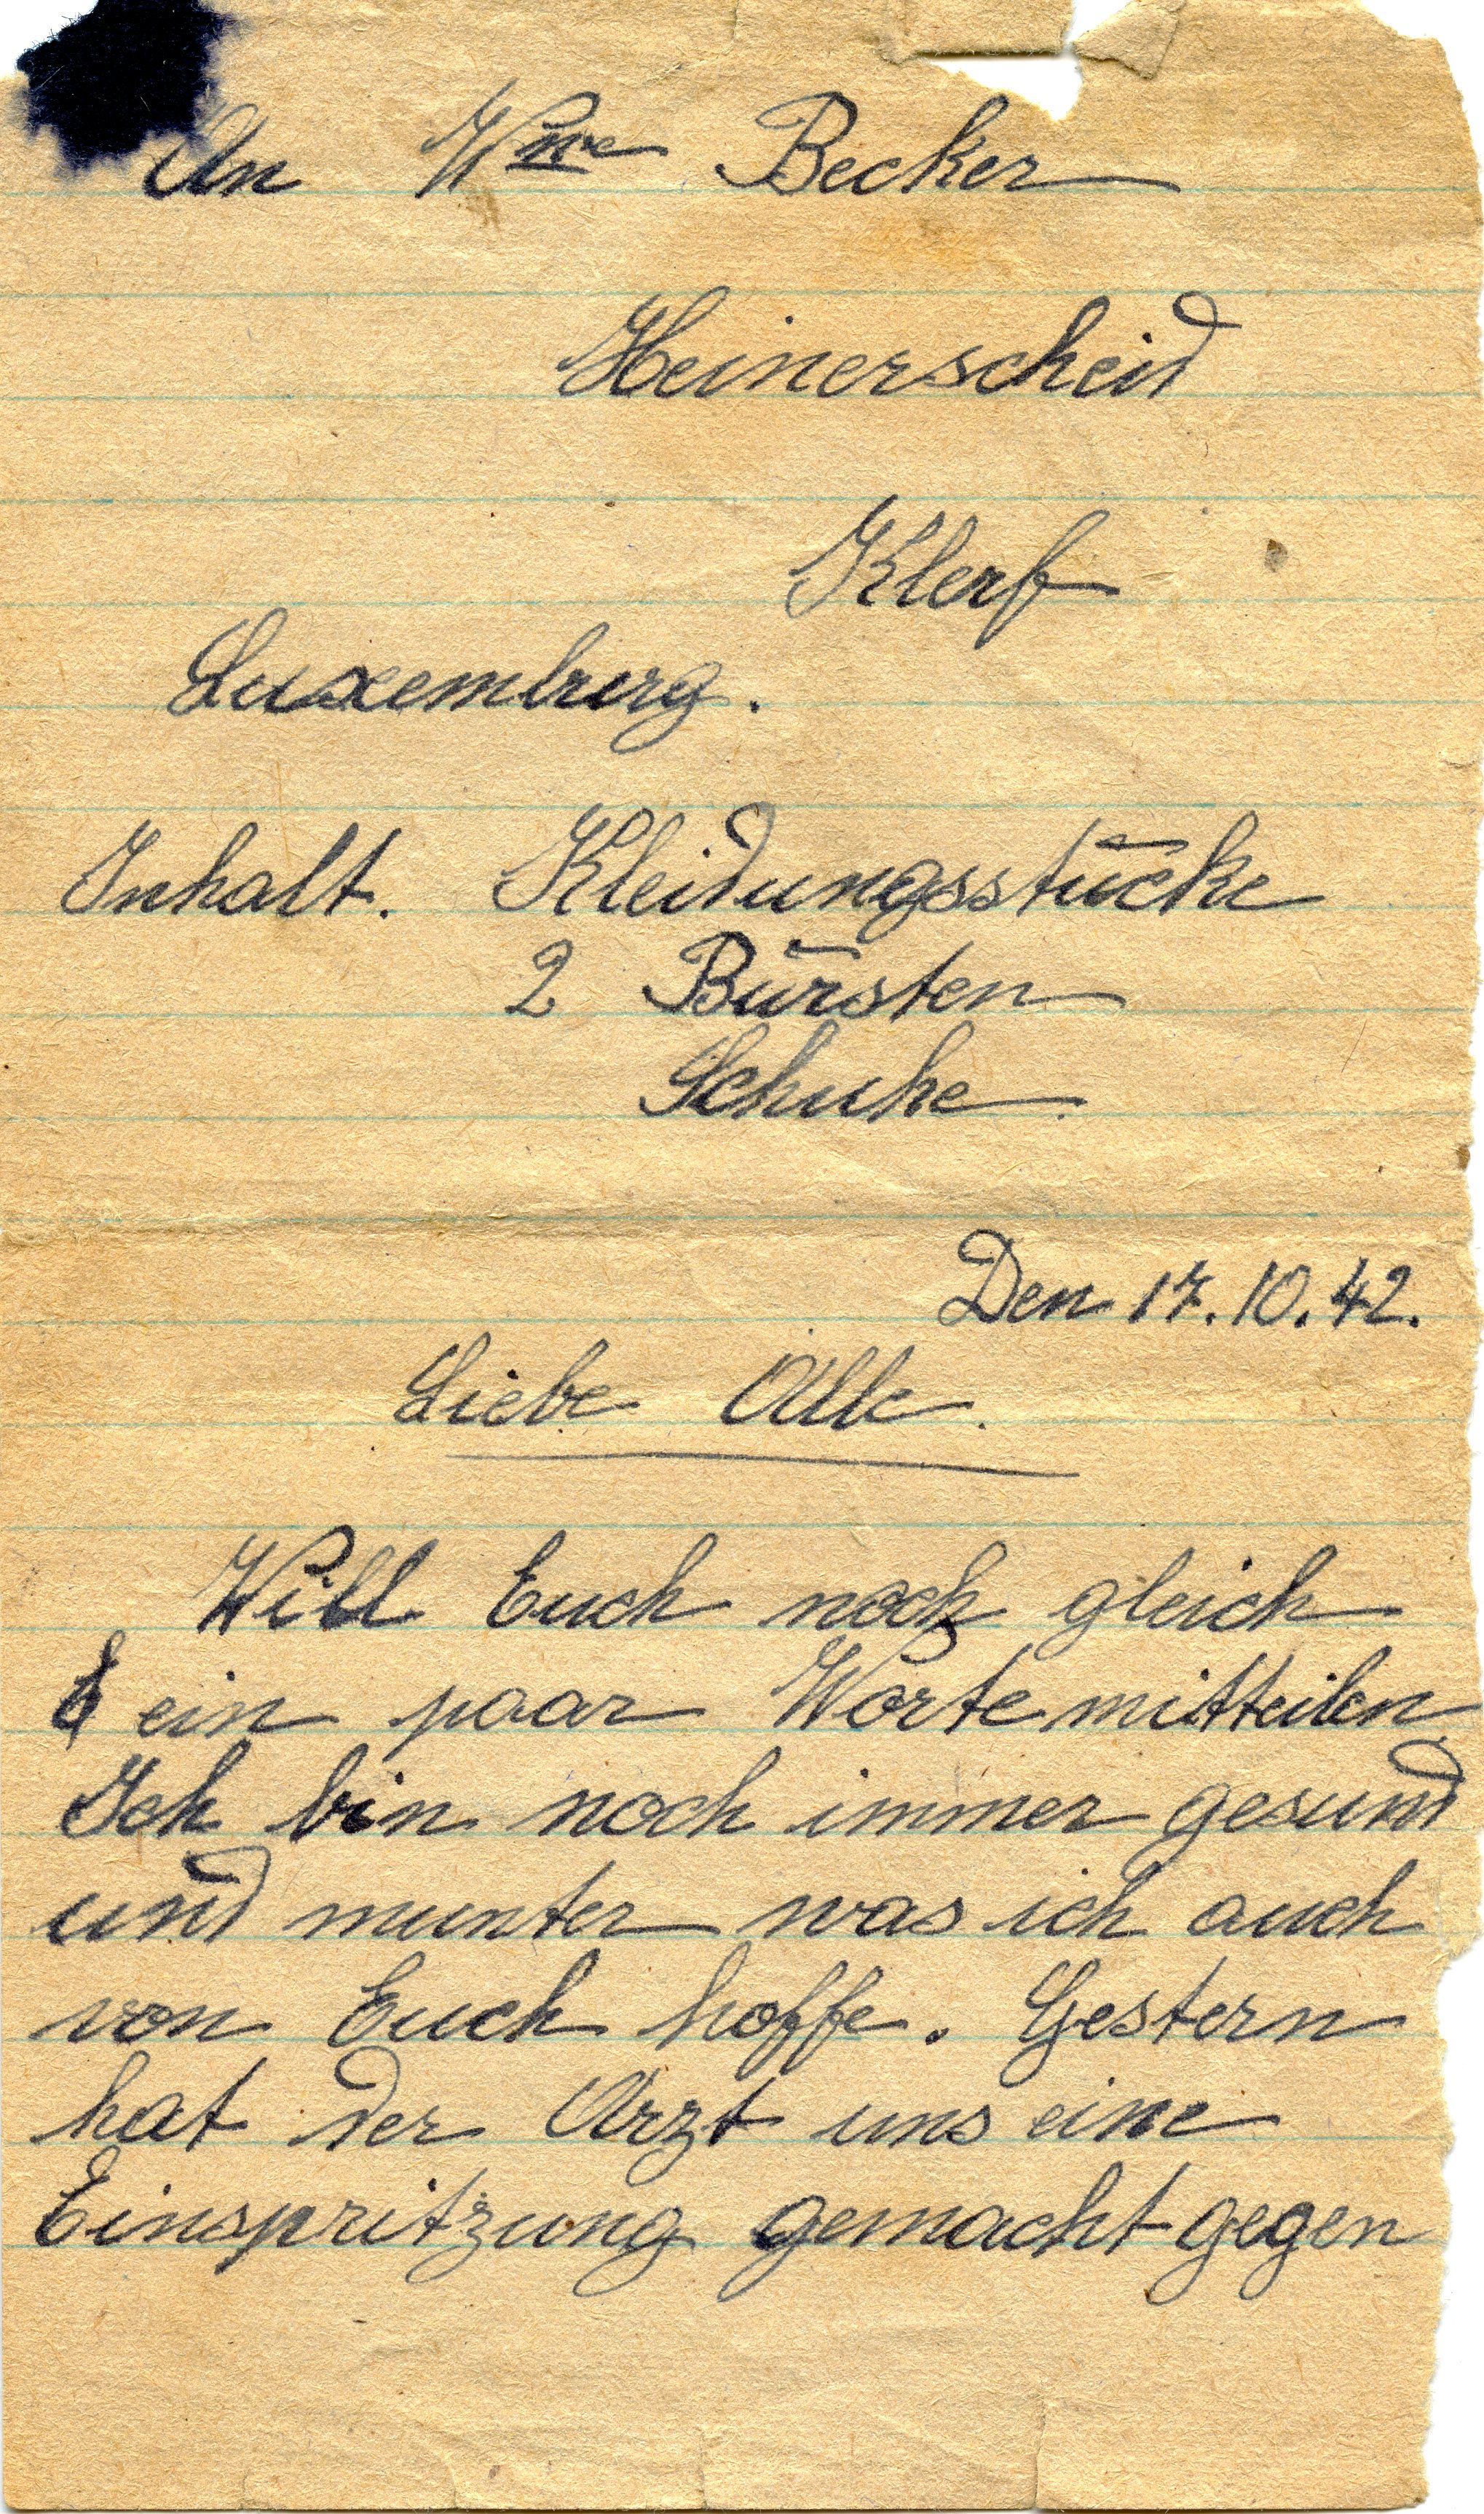 An Wwe Becker
Heinerscheid
Klerf
Luxemburg.
Inhalt. Kleidungsstücke
2 Bürsten
Schuhe.
Den 17.10.42.
Liebe Alle.
Will Euch noch gleich
ein paar Worte mitteilen
Ich bin noch immer gesund
und munter was ich auch
von Euch hoffe. Gestern
hat der Arzt uns eine
Einspritzung gemacht gegen